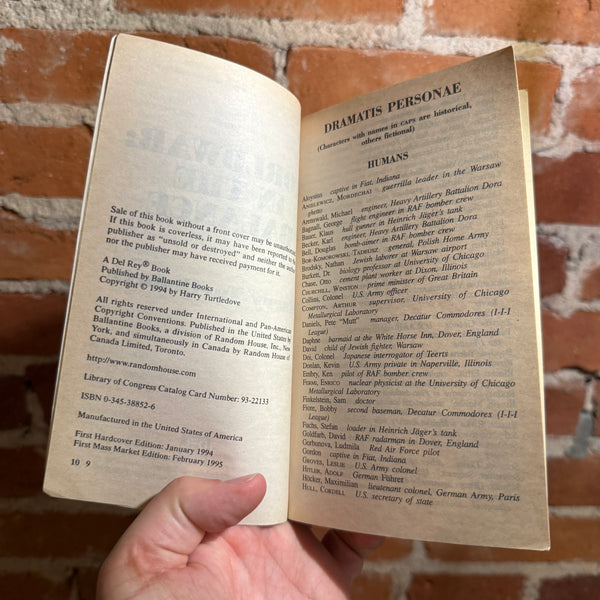 Sale of this book without a front cover may be
If this book is coverless, it may have been reported to
publisher as "unsold or destroyed" and neither the
nor the publisher may have received payment for it.
A Del Rey® Book
Published by Ballantine Books
Copyright © 1994 by Harry Turtledove
All rights reserved under International and Pan-American
Copyright Conventions. Published in the United States by
Ballantine Books, a division of Random House, Inc., New
York, and simultaneously in Canada by Random House of
Canada Limited, Toronto.
http://www.randomhouse.com
Library of Congress Catalog Card Number: 93-22133
ISBN 0-345-38852-6
Manufactured in the United States of America
First Hardcover Edition: January 1994
First Mass Market Edition: February 1995
10 9
DRAMATIS PERSONAE
(Characters with names in CAPS are historical,
others fictional)
HUMANS
Aloysius captive in Fiat, Indiana
ANIELEWICZ, MORDECHAI guerrilla leader in the Warsaw
ghetto
Arenswald, Michael engineer, Heavy Artillery Battalion Dora
Bagnall, George flight engineer in RAF bomber crew
Bauer, Klaus hull gunner in Heinrich Jäger's tank
Becker, Karl engineer, Heavy Artillery Battalion Dora
Bell, Douglas bomb-aimer in RAF bomber crew
BOR-KOMOROWSKI, TADEUSZ general, Polish Home Army
Brodsky, Nathan Jewish laborer at Warsaw airport
Burkett, Dr. biology professor at University of Chicago
Chase, Otto cement plant worker at Dixon, Illinois
CHURCHILL, WINSTON prime minister of Great Britain
Collins, Colonel U.S. Army officer
COMPTON, ARTHUR supervisor, University of Chicago
Metallurgical Laboratory
Daniels, Pete "Mutt" manager, Decatur Commodores (I-I-I
League)
Daphne barmaid at the White Horse Inn, Dover, England
David child of Jewish fighter, Warsaw
Doi, Colonel Japanese interrogator of Teerts
Donlan, Kevin U.S. Army private in Naperville, Illinois
Embry, Ken pilot of RAF bomber crew
FERMI, ENRICO nuclear physicist at the University of Chicago
Metallurgical Laboratory
Finkelstein, Sam doctor
Fiore, Bobby second baseman, Decatur Commodores (I-I-I
League)
Fuchs, Stefan loader in Heinrich Jäger's tank
Goldfarb, David RAF radarman in Dover, England
Gorbunova, Ludmila Red Air Force pilot
Gordon captive in Fiat, Indiana
GROVES, LESLIE U.S. Army colonel
HITLER, ADOLF German Führer
Höcker, Maximilian lieutenant colonel, German Army, Paris
HULL, CORDELL U.S. secretary of state